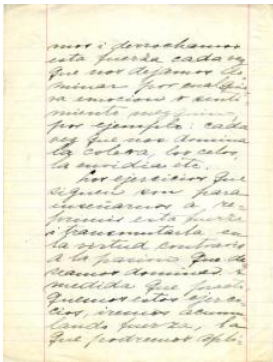 mos i derrochamos
esta fuerza cada vez
que nos dejamos do-
minar por cualquie-
ra emocion o senti-
miento
por ejemplo: cada
vez que nos domina
la colera, los celos,
la envidia etc.
Los ejercicios que
siguen son para
enseñarnos a, re-
primir esta fuerza
i transmutarla en
la virtud contraria
a la pasion que de-
seamos dominar. a
medida que practi-
quemos estos ejerci-
cios, iremos acumu-
lando fuerza, la
que podremos apli-